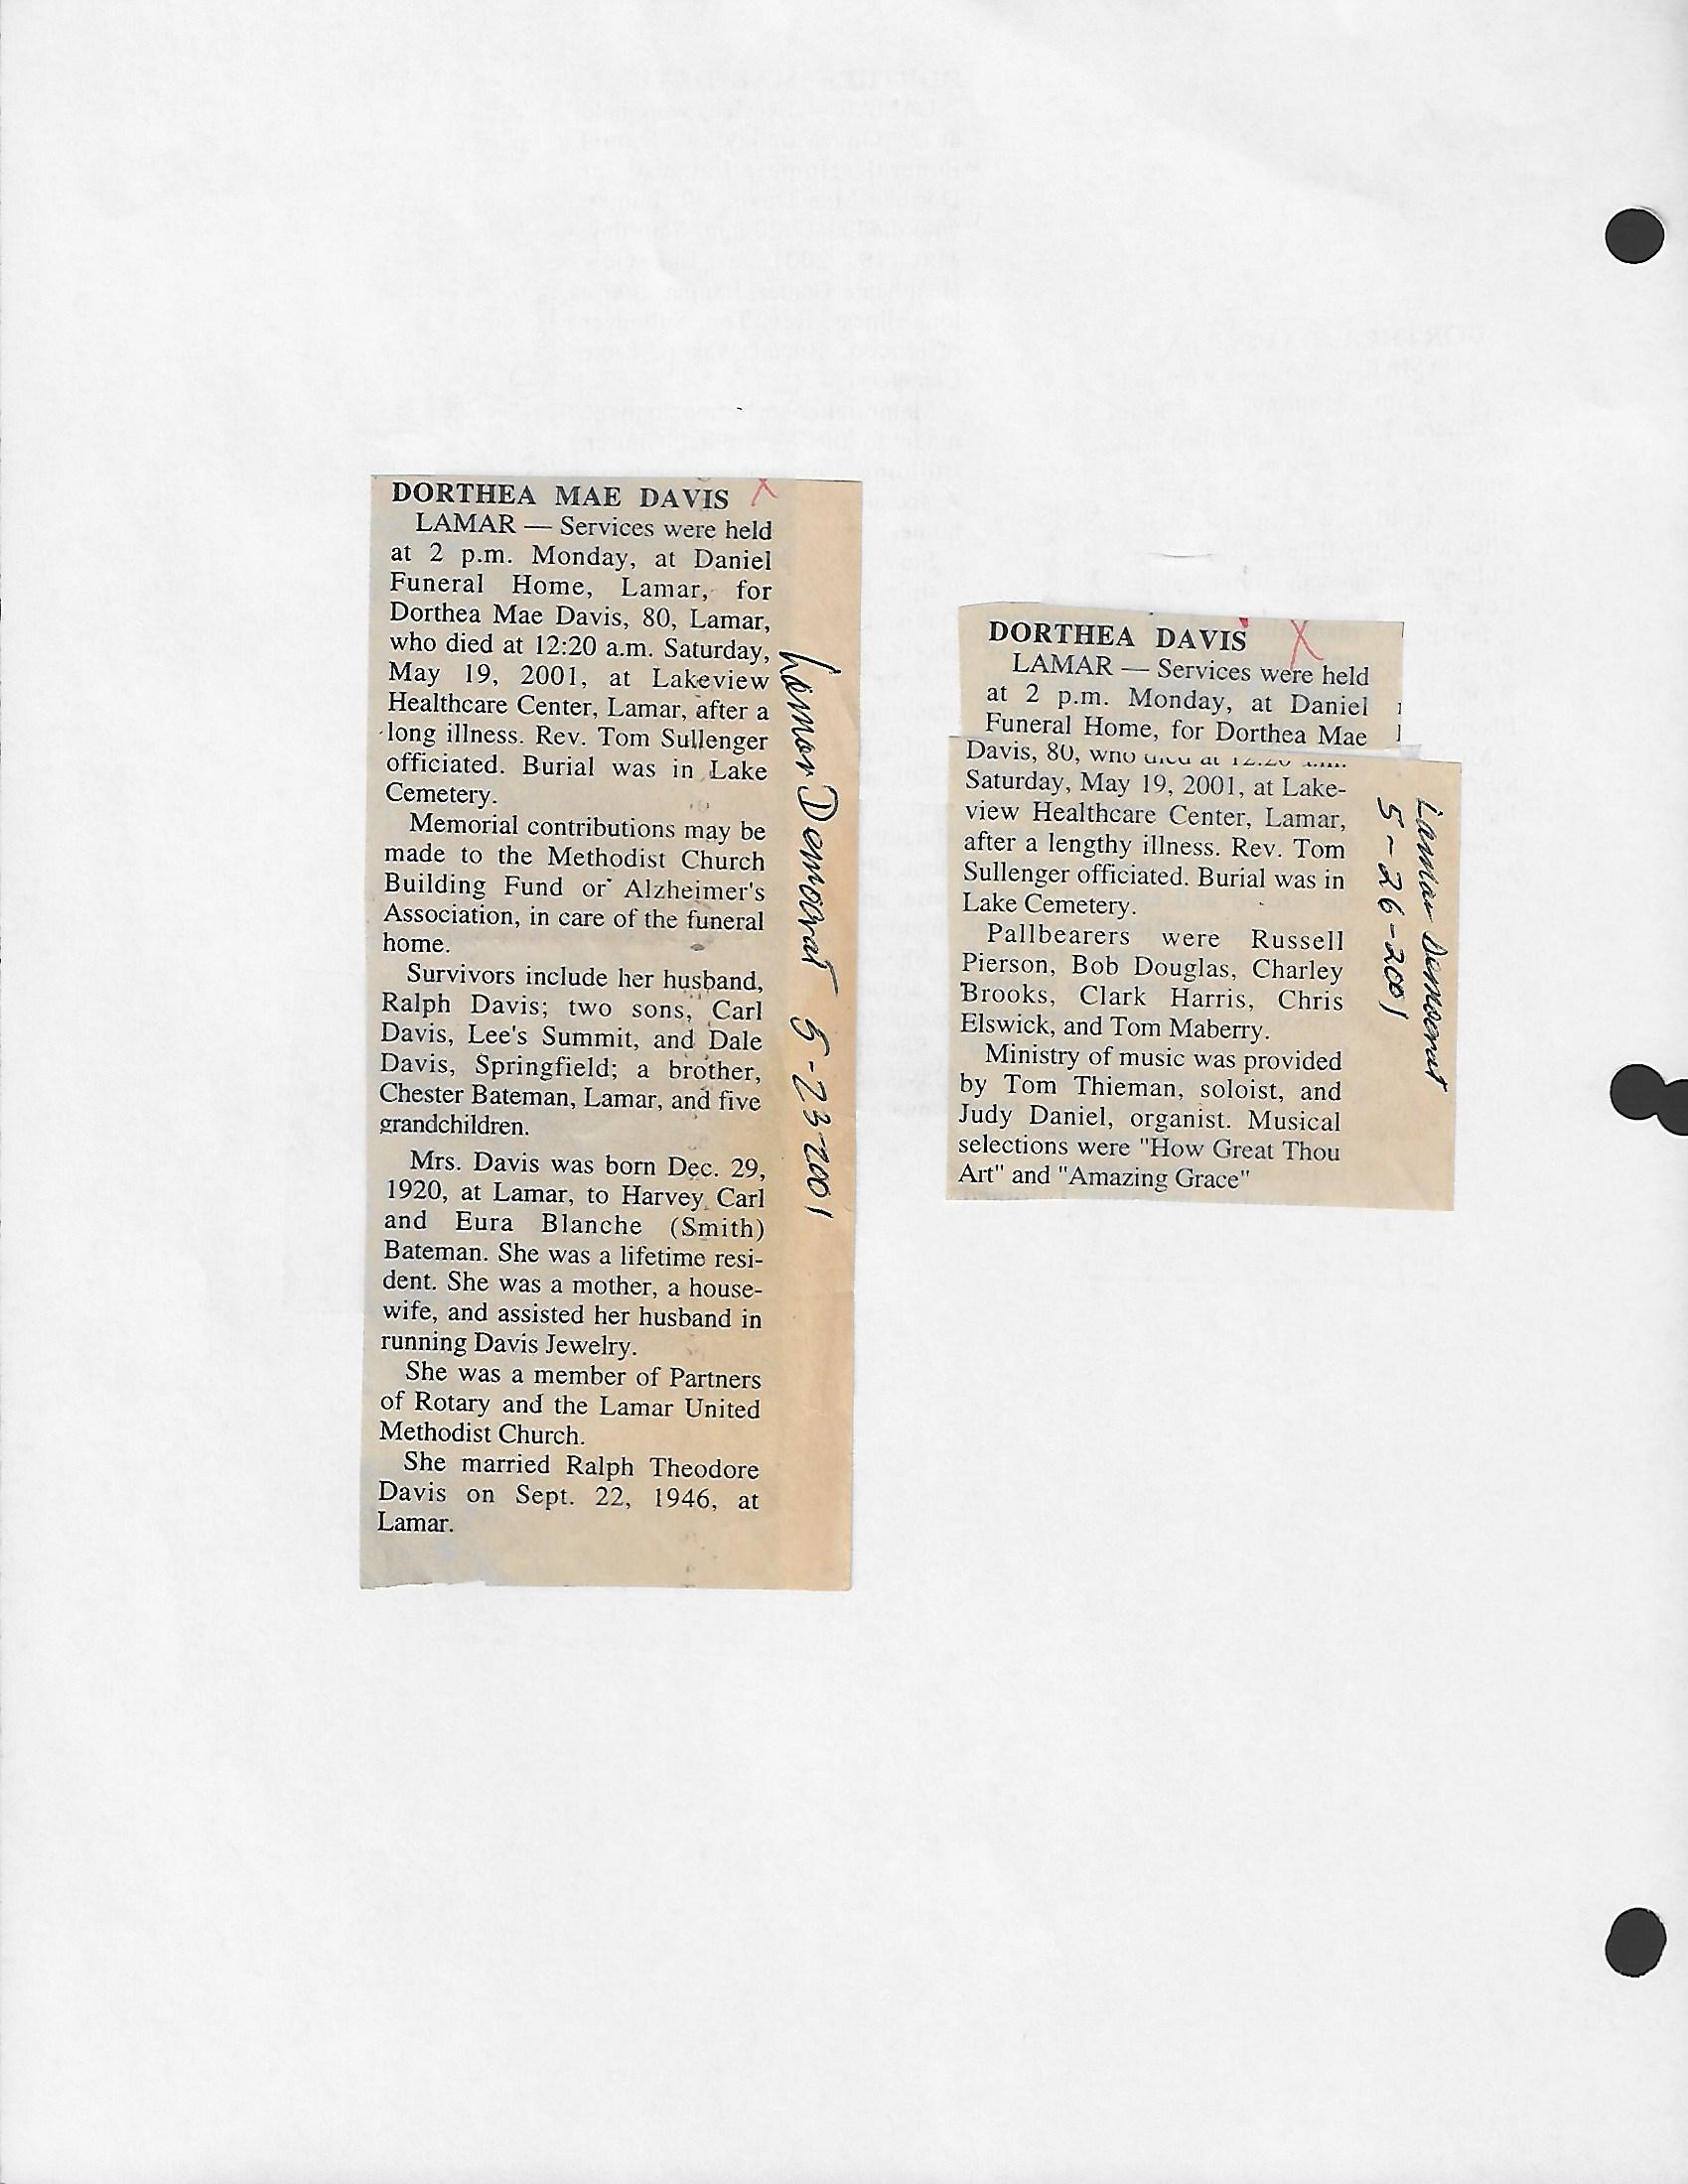 DORTHEA MAE DAVIS X
LAMAR — Services were held
at 2 p.m. Monday, at Daniel
Funeral Home, Lamar, for
Dorthea Mae Davis, 80, Lamar,
who died at 12:20 a.m. Saturday,
May 19, 2001, at Lakeview
Healthcare Center, Lamar, after a
long illness. Rev. Tom Sullenger
officiated. Burial was in Lake
Cemetery.
Memorial contributions may be
made to the Methodist Church
Building Fund or Alzheimer's
Association, in care of the funeral
home.
Survivors include her husband,
Ralph Davis; two sons, Carl
Davis, Lee's Summit, and Dale
Davis, Springfield; a brother,
Chester Bateman, Lamar, and five
grandchildren.
Mrs. Davis was born Dec. 29,
1920, at Lamar, to Harvey Carl
and Eura Blanche (Smith)
Bateman. She was a lifetime resi-
dent. She was a mother, a house-
wife, and assisted her husband in
running Davis Jewelry.
She was a member of Partners
of Rotary and the Lamar United
Methodist Church.
She married Ralph Theodore
Davis on Sept. 22, 1946, at
Lamar.
Lamar Democrat 5-23-2001
DORTHEA DAVIS X
LAMAR — Services were held
at 2 p.m. Monday, at Daniel
Funeral Home, for Dorthea Mae
Davis, 80, who died at 12:20 a.m.
Saturday, May 19, 2001, at Lake-
view Healthcare Center, Lamar,
after a lengthy illness. Rev. Tom
Sullenger officiated. Burial was in
Lake Cemetery.
Pallbearers were Russell
Pierson, Bob Douglas, Charley
Brooks, Clark Harris, Chris
Elswick, and Tom Maberry.
Ministry of music was provided
by Tom Thieman, soloist, and
Judy Daniel, organist. Musical
selections were "How Great Thou
Art" and "Amazing Grace"
Lamar Democrat
5-26-2001